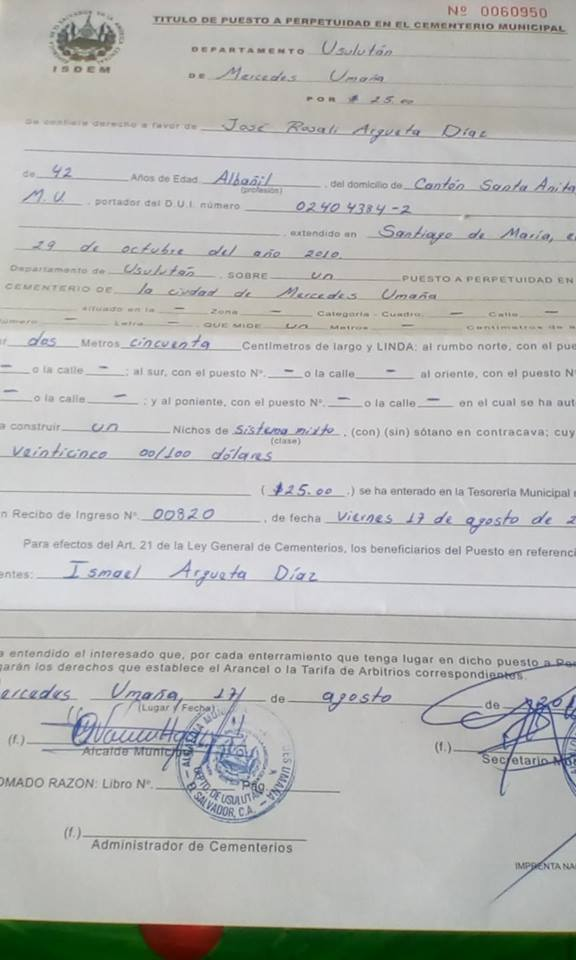 Nº 0060950
TITULO DE PUESTO A PERPETUIDAD EN EL CEMENTERIO MUNICIPAL
ISDEM
DEPARTAMENTO Usulután
DE Mercedes Umaña
POR $ 25.00
Se confiere derecho a favor de José Rosalí Argueta Díaz
de 42 Años de Edad Albañil , del domicilio de Cantón Santa Anita
(profesión)
M.U. , portador del D.U.I. número 02404384-2
, extendido en Santiago de María, e
29 de octubre del año 2010.
Departamento de Usulután , SOBRE un PUESTO A PERPETUIDAD EN
CEMENTERIO DE la ciudad de Mercedes Umaña
situado en la — Zona — Categoría - Cuadro. — Calle —
número — Letra — QUE MIDE un Metros — Centímetros de a
r dos Metros cincuenta Centímetros de largo y LINDA: al rumbo norte, con el pue
— o la calle — ; al sur, con el puesto Nº. — o la calle — al oriente, con el puesto N
— o la calle — ; y al poniente, con el puesto Nº. — o la calle — en el cual se ha aut
a construir un Nichos de sistema mixto , (con) (sin) sótano en contracava; cuy
(clase)
veinticinco 00/100 dólares
( $25.00 .) se ha enterado en la Tesorería Municipal
n Recibo de Ingreso Nº. 00820 , de fecha viernes 17 de agosto de 2
Para efectos del Art. 21 de la Ley General de Cementerios, los beneficiarios del Puesto en referenci
entes: Ismael Argueta Díaz
a entendido el interesado que, por cada enterramiento que tenga lugar en dicho puesto a Per
garán los derechos que establece el Arancel o la Tarifa de Arbitrios correspondientes.
Mercedes Umaña, 17 de agosto de 201
(Lugar y Fecha)
(f.)
(f.)
Alcalde Municipal
Secretario Mu
OMADO RAZON: Libro Nº. Pág.
DEPTO. DE USULUTAN
EL SALVADOR, C.A.
(f.)
Administrador de Cementerios
IMPRENTA NA